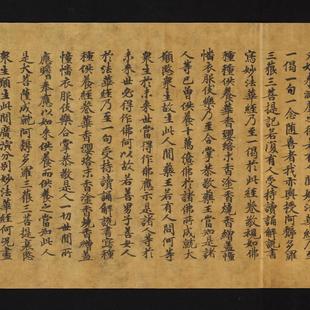 一偈一句一念隨喜者我亦與授阿耨多羅
三藐三菩提記若復有人受持讀誦解說書
寫妙法華經乃至一偈於此經卷敬視如佛
種種供養華香瓔珞末香塗香燒香繒蓋
幢幡衣服伎樂乃至合掌恭敬藥王當知是諸
人等已曾供養十萬億佛於諸佛所成就大
願愍眾生故生此人間藥王若有人問何等
眾生於未來世當得作佛應示是諸人等於
未來世必得作佛何以故若善男子善女人
於法華經乃至一句受持讀誦解說書寫種
種供養經卷華香瓔珞末香塗香燒香繒蓋
幢幡衣服伎樂合掌恭敬是人一切世間所
應瞻奉應以如來供養而供養之當知此人
是大菩薩成就阿耨多羅三藐三菩提哀愍
眾生願生此間廣演分別妙法華經何況盡